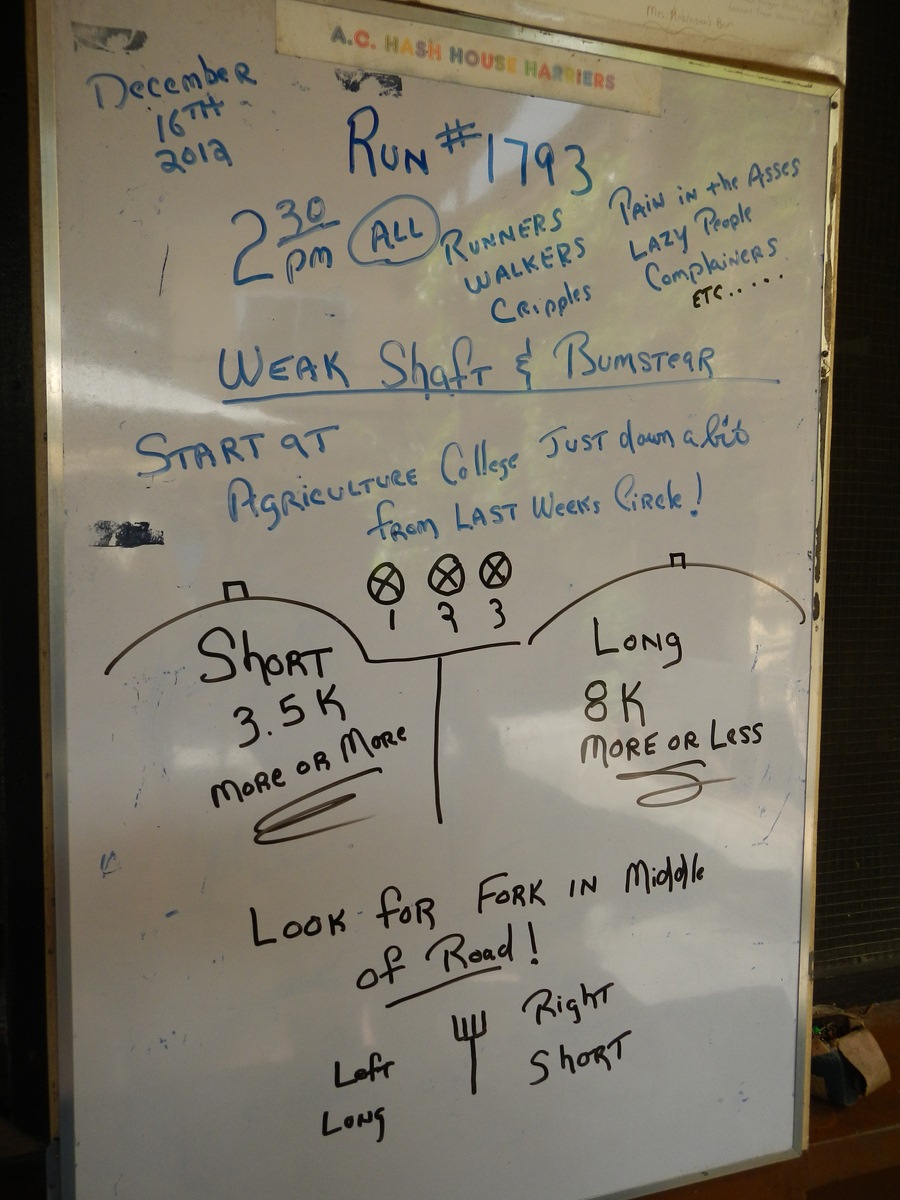 Mrs. Robinson's Bar
A.C. HASH HOUSE HARRIERS
December
16TH
2012
RUN # 1793
2 30 pm
ALL
RUNNERS
WALKERS
Cripples
PAIN in the Asses
LAZY People
Complainers
ETC.....
WEAK Shaft & BUMSTEAR
START AT
AGRICULTURE College JUST down a bit
from LAST Weeks Circle!
1 2 3
SHORT
3.5K
MORE OR MORE
LONG
8K
MORE OR Less
LOOK FOR FORK IN Middle
of Road!
Left
LONG
Right
SHORT